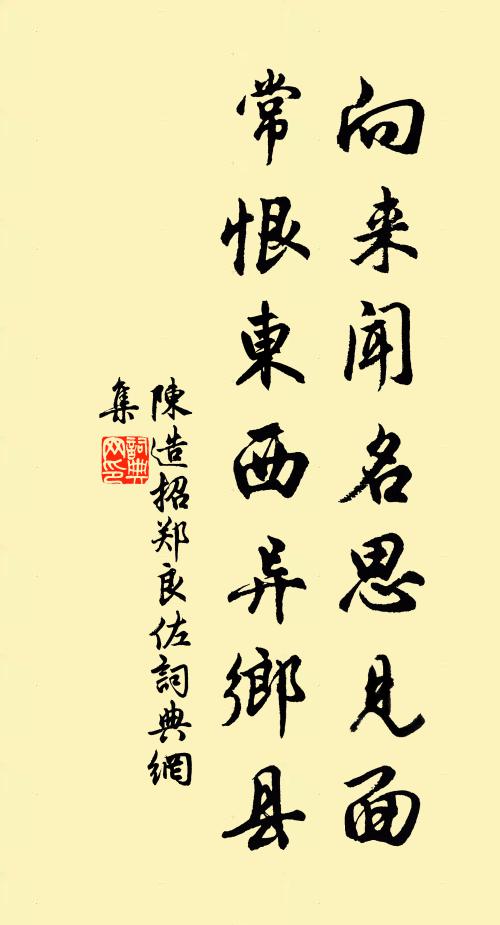 向来闻名思见面
常恨東西异鄉县
陳造招郑良佐詞典網
集
詞典
网印